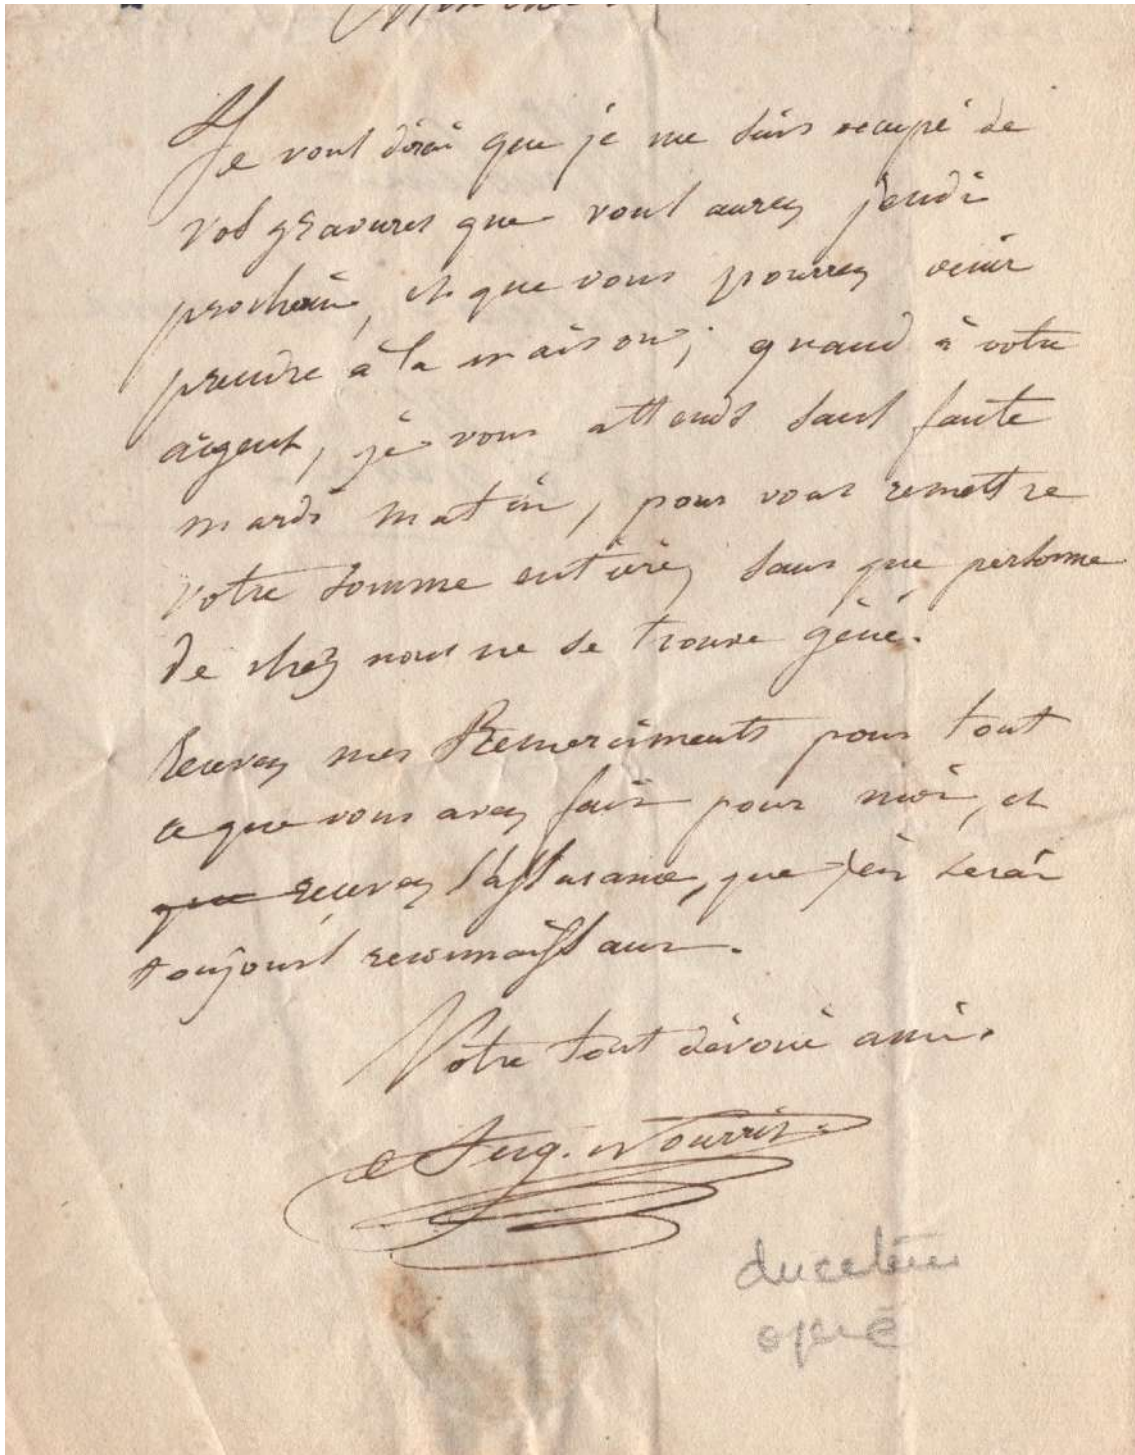 Mon cher
Je vous dirai que je me suis occupé de
vos gravures que vous aurez jeudi
prochain, et que vous pourrez venir
prendre à la maison; quand à votre
argent, je vous attends sans faute
mardi matin, pour vous remettre
votre somme entière, sans que personne
de chez nous ne se trouve gêné.
Recevez mes Remerciments pour tout
ce que vous avez fait pour moi, et
que recevez l'assurance, que j'en serai
toujours reconnaissant.
Votre tout dévoué ami.
Aug. Nourrit.